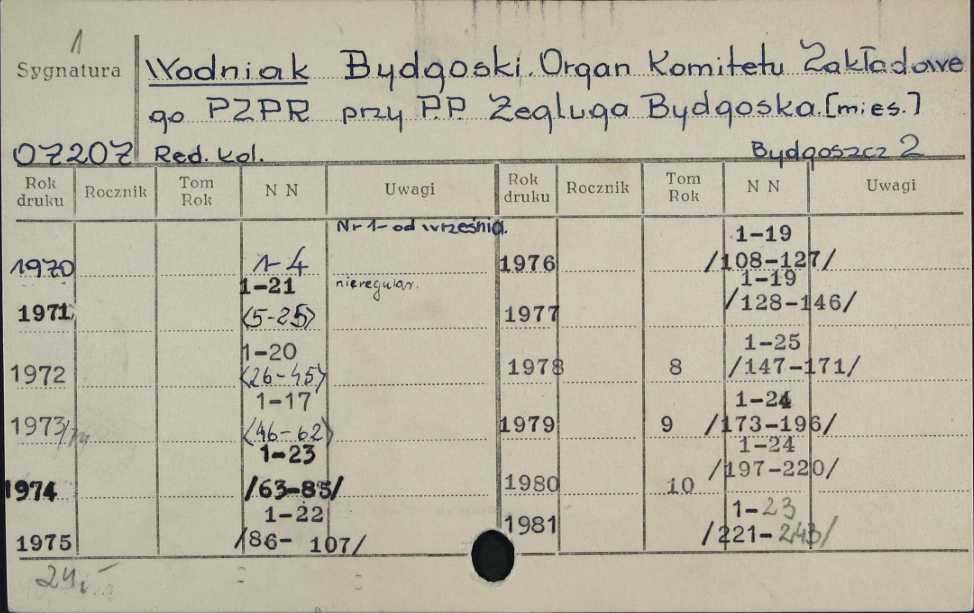 1
Sygnatura
Wodniak Bydgoski. Organ Komitetu Zakładowe
go PZPR przy P.P. Żegluga Bydgoska. [mies.]
07207 Red. kol. Bydgoszcz 2
Rok druku Rocznik Tom Rok N N Uwagi Rok druku Rocznik Tom Rok N N Uwagi
Nr 1 - od września.
1970 1-4
1971 1-21 nieregular.
<5-25>
1972 1-20
<26-45>
1973 1-17
<46-62>
1974 1-23
/63-85/
1975 1-22
/86-107/
1976 1-19
/108-127/
1977 1-19
/128-146/
1978 8 1-25
/147-171/
1979 9 1-24
/173-196/
1980 10 1-24
/197-220/
1981 1-23
/221-243/
24,-